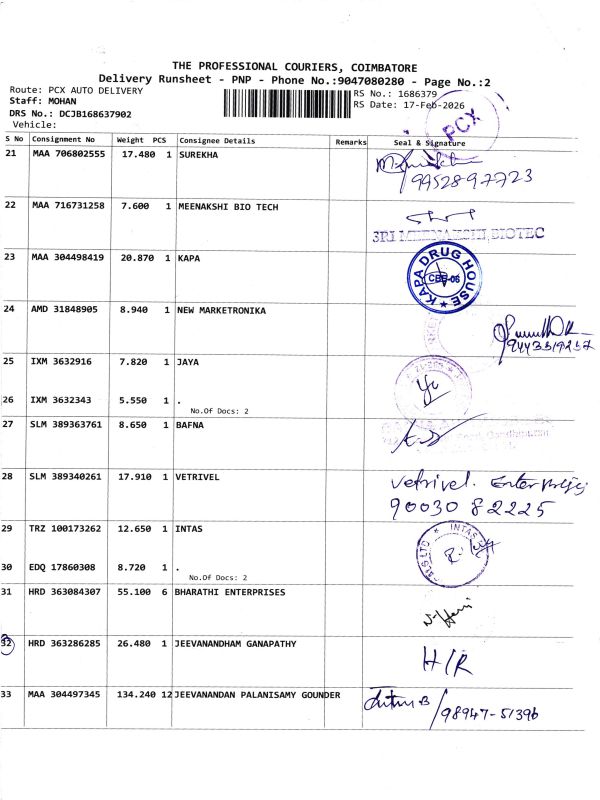 THE PROFESSIONAL COURIERS, COIMBATORE
Delivery Runsheet - PNP - Phone No.:9047080280 - Page No.:2
Route: PCX AUTO DELIVERY
Staff: MOHAN
DRS No.: DCJB168637902
Vehicle:
RS No.: 1686379
RS Date: 17-Feb-2026
PCX
S No Consignment No Weight PCS Consignee Details Remarks Seal & Signature
21 MAA 706802555 17.480 1 SUREKHA
9952897723
22 MAA 716731258 7.600 1 MEENAKSHI BIO TECH
SRI MEENAKSHI BIOTEC
23 MAA 304498419 20.870 1 KAPA
KAPA DRUG HOUSE
CBE-06
24 AMD 31848905 8.940 1 NEW MARKETRONIKA
25 IXM 3632916 7.820 1 JAYA
26 IXM 3632343 5.550 1 .
No.Of Docs: 2
27 SLM 389363761 8.650 1 BAFNA
28 SLM 389340261 17.910 1 VETRIVEL
Vetrivel. Enterprises
90030 82225
29 TRZ 100173262 12.650 1 INTAS
INTAS
30 EDQ 17860308 8.720 1 .
No.Of Docs: 2
31 HRD 363084307 55.100 6 BHARATHI ENTERPRISES
32 HRD 363286285 26.480 1 JEEVANANDHAM GANAPATHY
H/R
33 MAA 304497345 134.240 12 JEEVANANDAN PALANISAMY GOUNDER
98947-51396